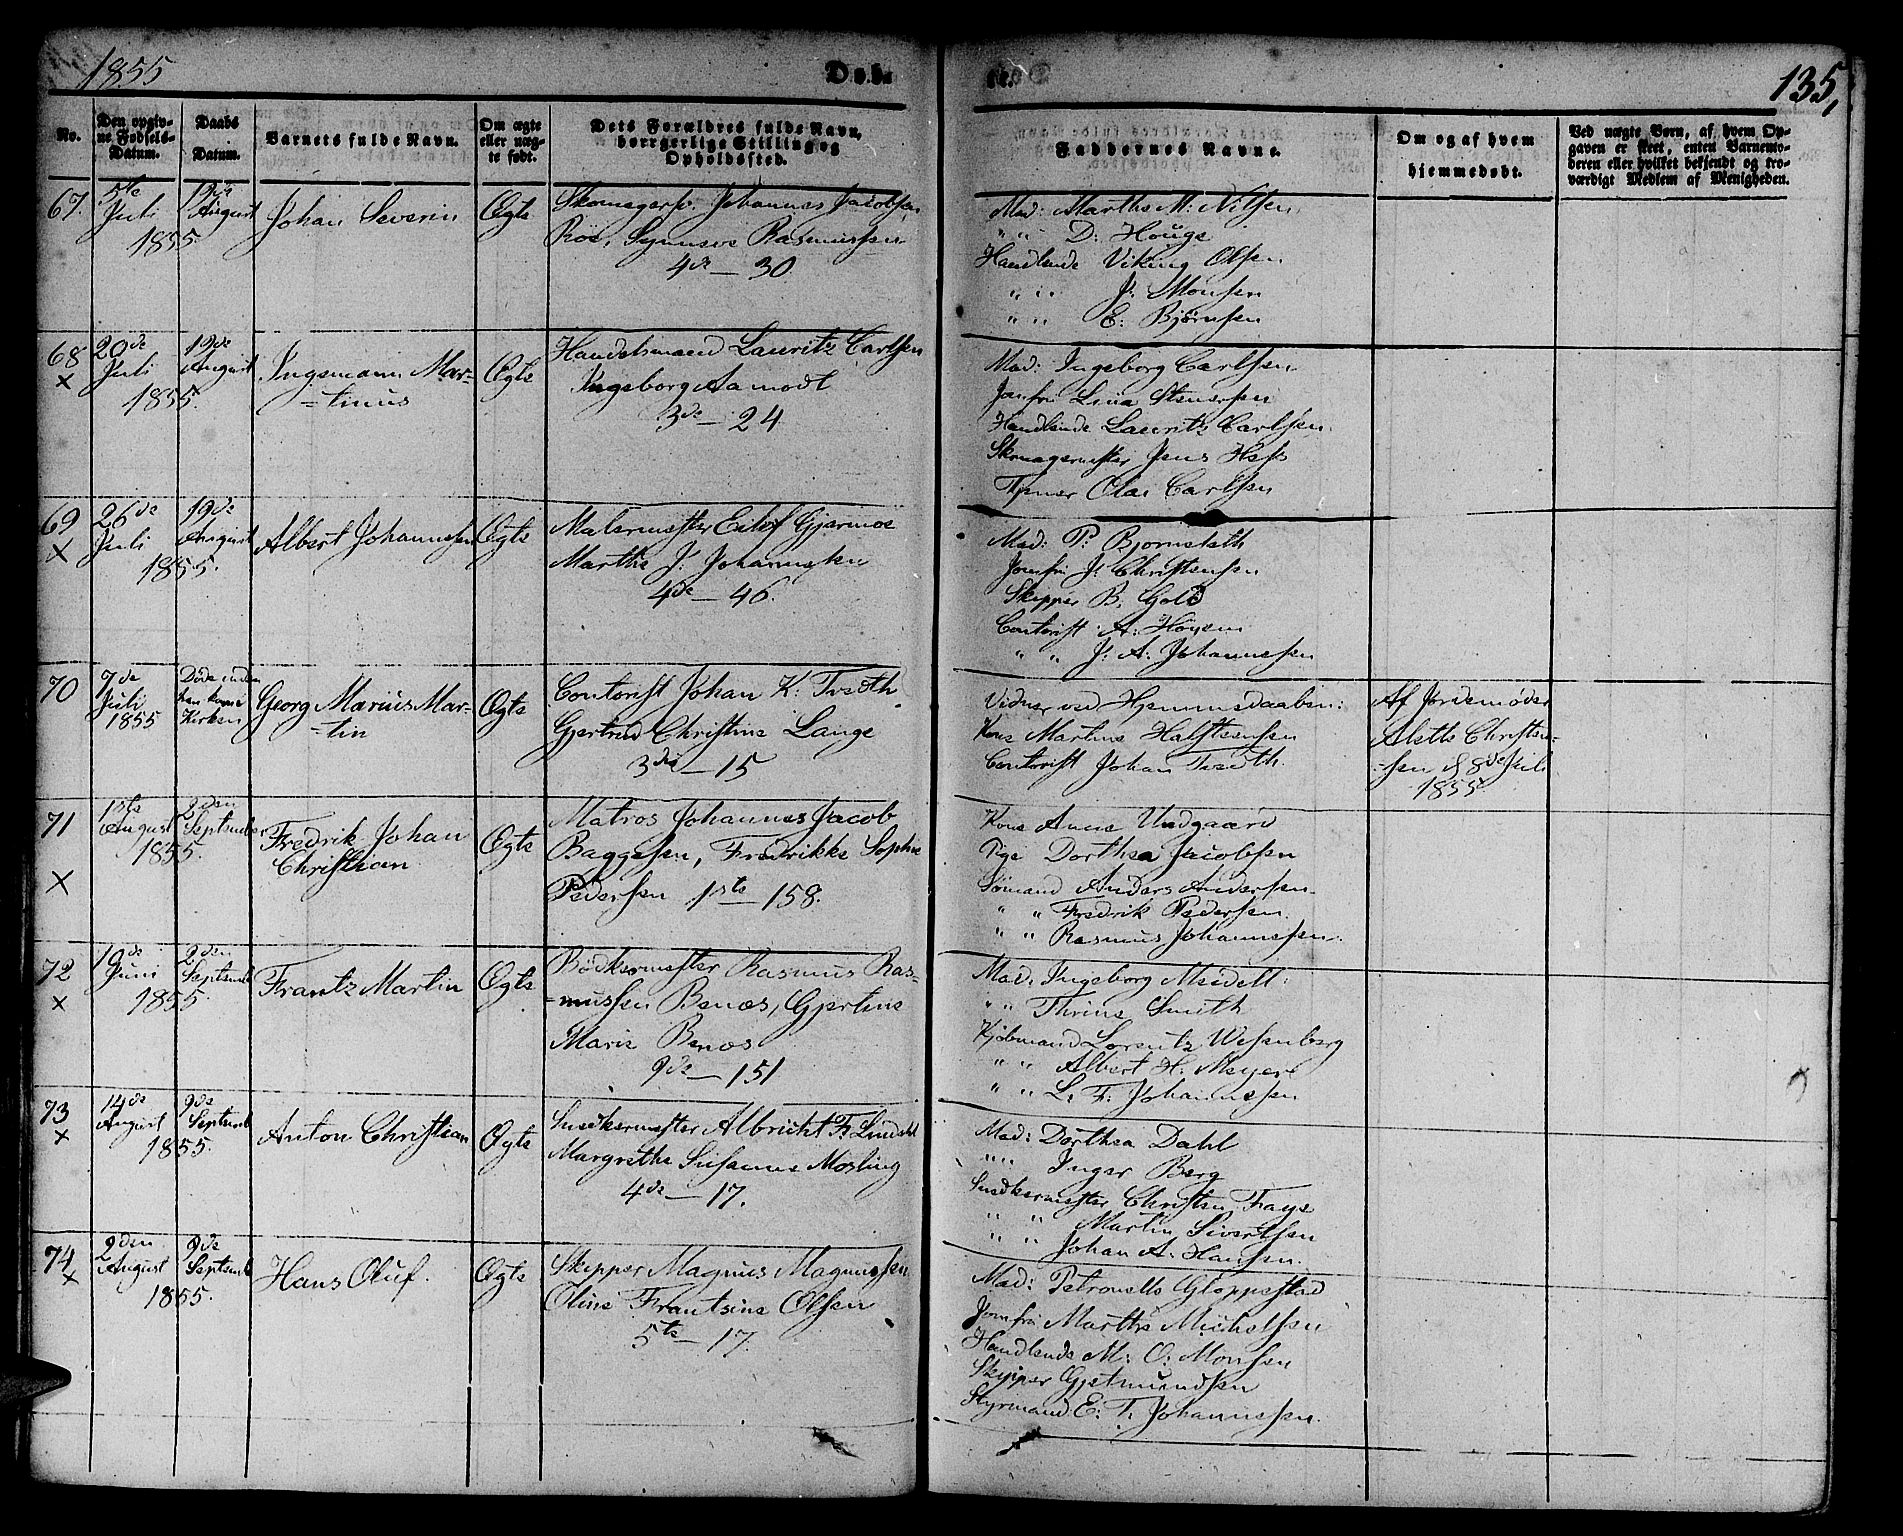 1855
Døb-
te.
135,
No.
Den opgiv-
ne Fødsels-
Datum.
Daabs
Datum.
Barnets fulde Navn.
Om ægte
eller uæg-
te født.
Dets Forældres fulde Navn,
borgerlige Stilling og
Opholdssted.
Faddernes Navne.
Om og af hvem
hjemmedøbt.
Ved uægte Børn, af hvem Op-
gaven er skeet, enten Barnemo-
deren eller hvilket bekjendt og tro-
værdigt Medlem af Menigheden.
67.
5te
Juli
1855.
19de
August
Johan Severin
Ægte
Skomagersv. Johannes Jacobsen
Röe, Synneve Rasmussen
4de — 30
Mad: Marthe M: Nilsen
" " D: Houge
Handlende Viking Olsen
" " J: Monsen
" " E: Bjørnsen
68
×
20de
Juli
1855.
19de
August
Ingemann Mar-
=tinus
Ægte
Handelsmand Lauritz Carlsen
Ingeborg Aamodt
3de — 24
Mad: Ingeborg Carlsen
Jomfru Lina Stenersen
Handlende Lauritz Carlsen
Skomagermester Jens Hess
Tjener Olai Carlsen
69
×
26de
Juli
1855.
19de
August
Albert Johannesen
Ægte
Malermester Eilof Gjermoe
Marthe J. Johannesen
4de — 46.
Mad: P: Bjornsteth
Jomfru J: Christensen
Skipper B. Gold
Contorist A: Höyem
" " J: A: Johannesen
70
7de
Juli
1855
Døde inden
den kom i
Kirken
Georg Marius Mar-
=tin
Ægte
Contorist Johan K: Tredth
Gjertrud Christine Lange
3die — 15
Vidner ved Hjemmedaaben:
Kone Martine Halstensen
Contorist Johan Tredth.
Af Jordemøder
Alette Christen-
=sen d 8de Juli
1855
71
×
1ste
August
1855.
2den
September
Fredrik Johan
Christian
Ægte
Matros Johannes Jacob
Baggesen, Fredrikke Sophie
Pedersen 1ste — 158.
Kone Anne Undgaard
Pige Dorthea Jacobsen
Sømand Anders Andersen
" " Fredrik Pedersen
" " Rasmus Johannesen.
72
×
19de
Juni
1855.
2den
Septemb
Frantz Martin
Ægte
Bødkermester Rasmus Ras-
=mussen Benæs, Gjertine
Marie Benæs
9de — 151
Mad: Ingeborg Meidell:
" " Thrine Smith
Kjøbmand Lorentz Wesenberg
" " Albert H. Meyer
" " L. F. Johannesen
73
×
14de
August
1855.
9de
Septemb
Anton Christian
Ægte
Snedkermester Albricht F. Lindahl
Margrethe Susanne Mosling
4de — 17.
Mad: Dorthea Dahl
" " Inger Berg
Snedkermester Christen Faye
" " Martin Sivertsen
" " Johan A. Hansen.
74
×
2den
August
1855.
9de
Septemb
Hans Oluf.
Ægte
Skipper Magnus Magnussen
Oline Frantsine Olsen
5te — 17.
Mad: Petronelle Gloppestad
Jomfru Marthe Michelsen
Handlende M: O: Monsen
Skipper Gjetmundsen
Styrmand E: T. Johannesen.